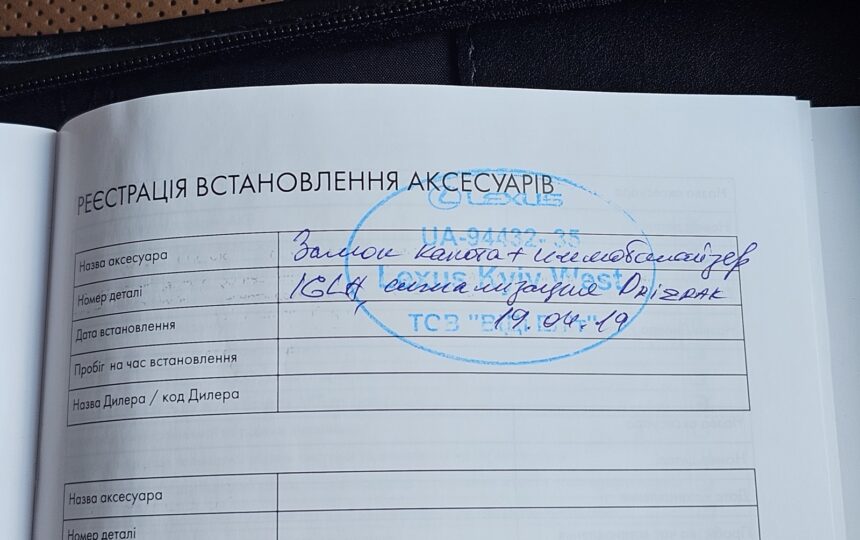 РЕЄСТРАЦІЯ ВСТАНОВЛЕННЯ АКСЕСУАРІВ
LEXUS
UA-94432-35
Lexus Kyiv West
ТСВ
Назва аксесуара
Замок капота + иммобилайзер
Номер деталі
IGLA, сигнализация Prizrak
Дата встановлення
19.04.19
Пробіг на час встановлення
Назва Дилера / код Дилера
Назва аксесуара
Номер деталі